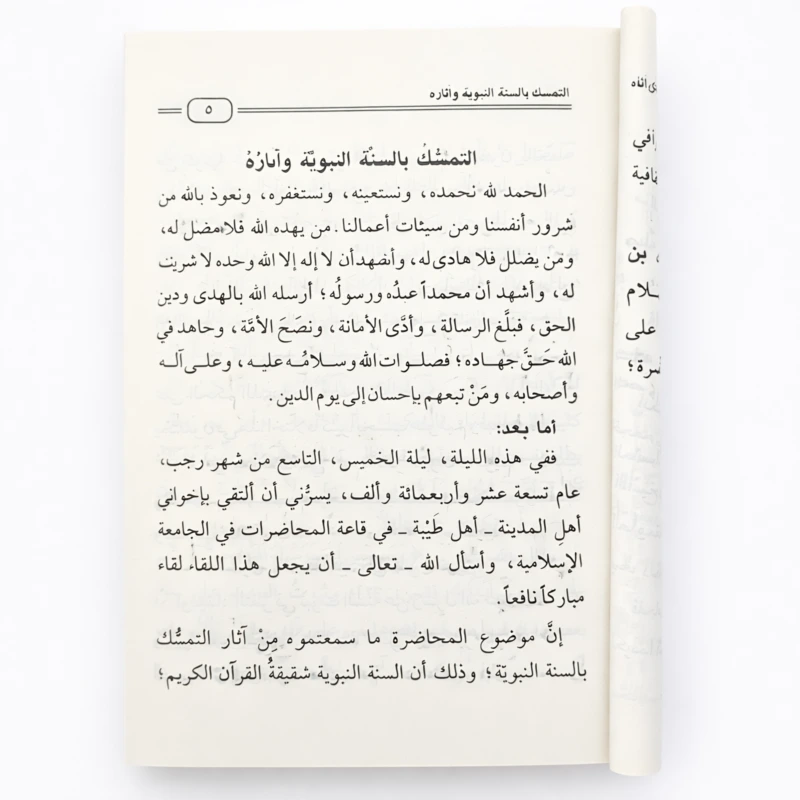 التمسك بالسنة النبوية وآثاره
٥
التمسُّكُ بالسنَّة النبويَّة وآثارُهُ
الحمد لله نحمده، ونستعينه، ونستغفره، ونعوذ بالله من
شرور أنفسنا ومن سيئات أعمالنا. من يهده الله فلا مضل له،
ومَن يضلل فلا هادي له، وأشهد أن لا إله إلا الله وحده لا شريك
له، وأشهد أن محمداً عبدُه ورسولُه؛ أرسله الله بالهدى ودين
الحق، فبلَّغ الرسالة، وأدَّى الأمانة، ونصَحَ الأمَّة، وجاهد في
الله حَقَّ جهاده؛ فصلوات الله وسلامُه عليه، وعلى آله
وأصحابه، ومَنْ تبعهم بإحسان إلى يوم الدين.
أما بعد:
ففي هذه الليلة، ليلة الخميس، التاسع من شهر رجب،
عام تسعة عشر وأربعمائة وألف، يسرُّني أن ألتقي بإخواني
أهلِ المدينة ـ أهل طَيْبة ـ في قاعة المحاضرات في الجامعة
الإسلامية، وأسأل الله ـ تعالى ـ أن يجعل هذا اللقاء لقاء
مباركاً نافعاً.
إنَّ موضوع المحاضرة ما سمعتموه مِنْ آثار التمسُّك
بالسنة النبويّة؛ وذلك أن السنة النبوية شقيقةُ القرآن الكريم؛
بن
على